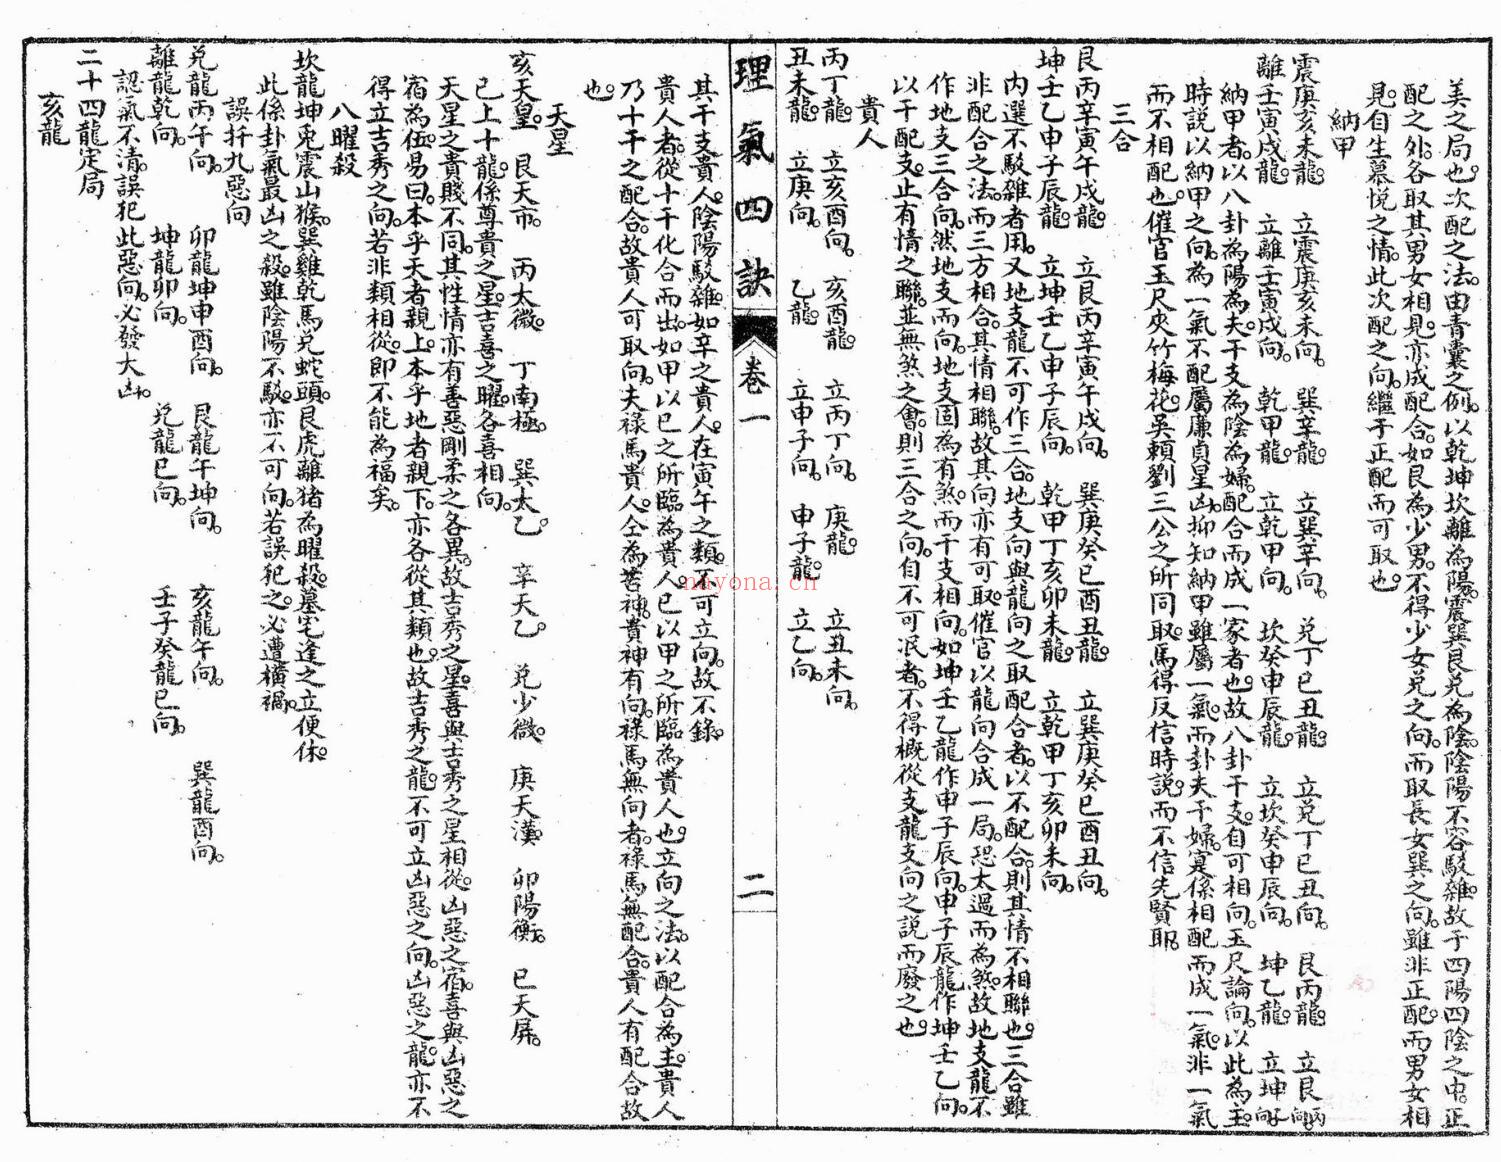 美之局也。次配之法。由青囊之例。以乾坤坎離為陽。震巽艮兑為陰。陰陽不容駁雜。故于四陽四陰之中。正
配之外。各取其男女相見。亦成配合。如艮為少男。不得少女兑之向。而取長女巽之向。雖非正配。而男女相
見。自生慕悦之情。此次配之向。繼于正配而可取也。
納甲
震庚亥未龍。 立震庚亥未向。 巽辛龍。 立巽辛向。 兑丁巳丑龍。 立兑丁巳丑向。 艮丙龍。 立艮丙向。
離壬寅戌龍。 立離壬寅戌向。 乾甲龍。 立乾甲向。 坎癸申辰龍。 立坎癸申辰向。 坤乙龍。 立坤乙向。
納甲者。以八卦為陽為夫。干支為陰為婦。配合而成一家者也。故八卦干支。自可相向。玉尺論向。以此為主。
時説以納甲之向。為一氣不配。屬廉貞星凶。抑知納甲雖屬一氣。而卦夫干婦。寔係相配而成一氣。非一氣
而不相配也。催官玉尺夾竹梅花。吳賴劉三公之所同取。焉得反信時説。而不信先賢耶。
三合
艮丙辛寅午戌龍。 立艮丙辛寅午戌向。 巽庚癸巳酉丑龍。 立巽庚癸巳酉丑向。
坤壬乙申子辰龍。 立坤壬乙申子辰向。 乾甲丁亥卯未龍。 立乾甲丁亥卯未向。
内選不駁雜者用。又地支龍不可作三合。地支向與龍向之取配合者。以不配合。則其情不相聯也。三合雖
非配合之法。而三方相合。其情相聯。故其向亦有可取。催官以龍向合成一局。恐太過而為煞。故地支龍不
作地支三合向。然地支而向。地支固為有煞。而干支相向。如坤壬乙龍作申子辰向。申子辰龍作坤壬乙向。
以干配支。止有情之聯。並無煞之會。則三合之向。自不可泯者。不得概從支龍支向之説而廢之也。
貴人
丙丁龍。 立亥酉向。 亥酉龍。 立丙丁向。 庚龍。 立丑未向。
丑未龍。 立庚向。 乙龍。 立申子向。 申子龍。 立乙向。
理氣四訣 卷一 二
其干支貴人。陰陽駁雜。如辛之貴人。在寅午之類。不可立向。故不錄。
貴人者。從十干化合而出。如甲以巳之所臨為貴人。巳以甲之所臨為貴人也。立向之法。以配合為主。貴人
乃十干之配合。故貴人可取向。夫祿馬貴人。仝為吉神。貴神有向。祿馬無向者。祿馬無配合。貴人有配合故
也。
天星
亥天皇。 艮天市。 丙太微。 丁南極。 巽太乙。 辛天乙。 兑少微。 庚天漢。 卯陽衡。 巳天屏。
已上十龍。係尊貴之星。吉喜之曜。各喜相向。
天星之貴賤不同。其性情亦有善惡剛柔之各異。故吉秀之星。喜與吉秀之星相從。凶惡之宿。喜與凶惡之
宿為伍。易曰。本乎天者親上。本乎地者親下。亦各從其類也。故吉秀之龍。不可立凶惡之向。凶惡之龍。亦不
得立吉秀之向。若非類相從。即不能為福矣。
八曜殺
坎龍坤兎震山猴。巽雞乾馬兑蛇頭。艮虎離猪為曜殺。墓宅逢之立便休。
此係卦氣最凶之殺。雖陰陽不駁。亦不可向。若誤犯之。必遭橫禍。
誤扦九惡向
兑龍丙午向。 卯龍坤申酉向。 艮龍午坤向。 亥龍午向。 巽龍酉向。
離龍乾向。 坤龍卯向。 兑龍巳向。 壬子癸龍巳向。
認氣不清。誤犯此惡向。必發大凶。
二十四龍定局
亥龍
nayona.cn